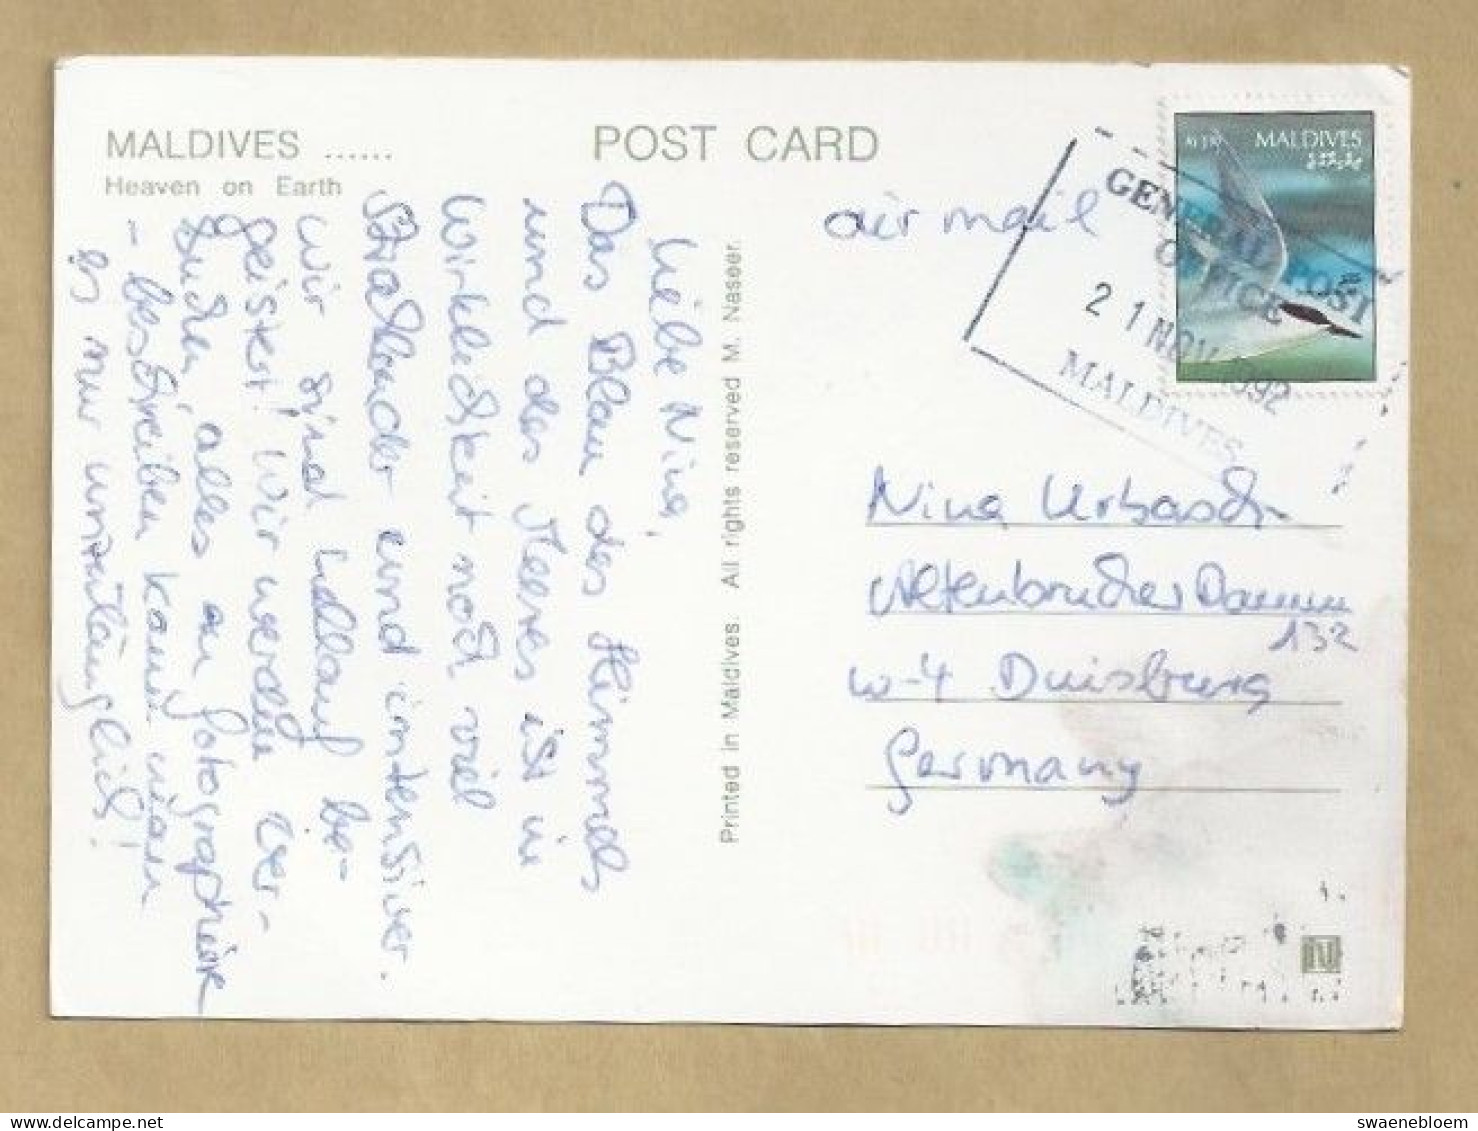 MALDIVES ......
Heaven on Earth
POST CARD
air mail
MALDIVES
GENERAL POST
OFFICE
21 NOV 1992
MALDIVES
Liebe Nina,
Das Blau des Himmels
und des Meeres ist in
Wirklichkeit noch viel
strahlender und intensiver.
Wir sind hellauf be-
geistert! Wir werden ver-
suchen, alles zu fotographieren
- beschreiben kann man
es nur unzulänglich!
Printed in Maldives. All rights reserved M. Naseer.
Nina Urbasch
Altenbrucher Damm
132
W-4 Duisburg
Germany
N
swaenebloem